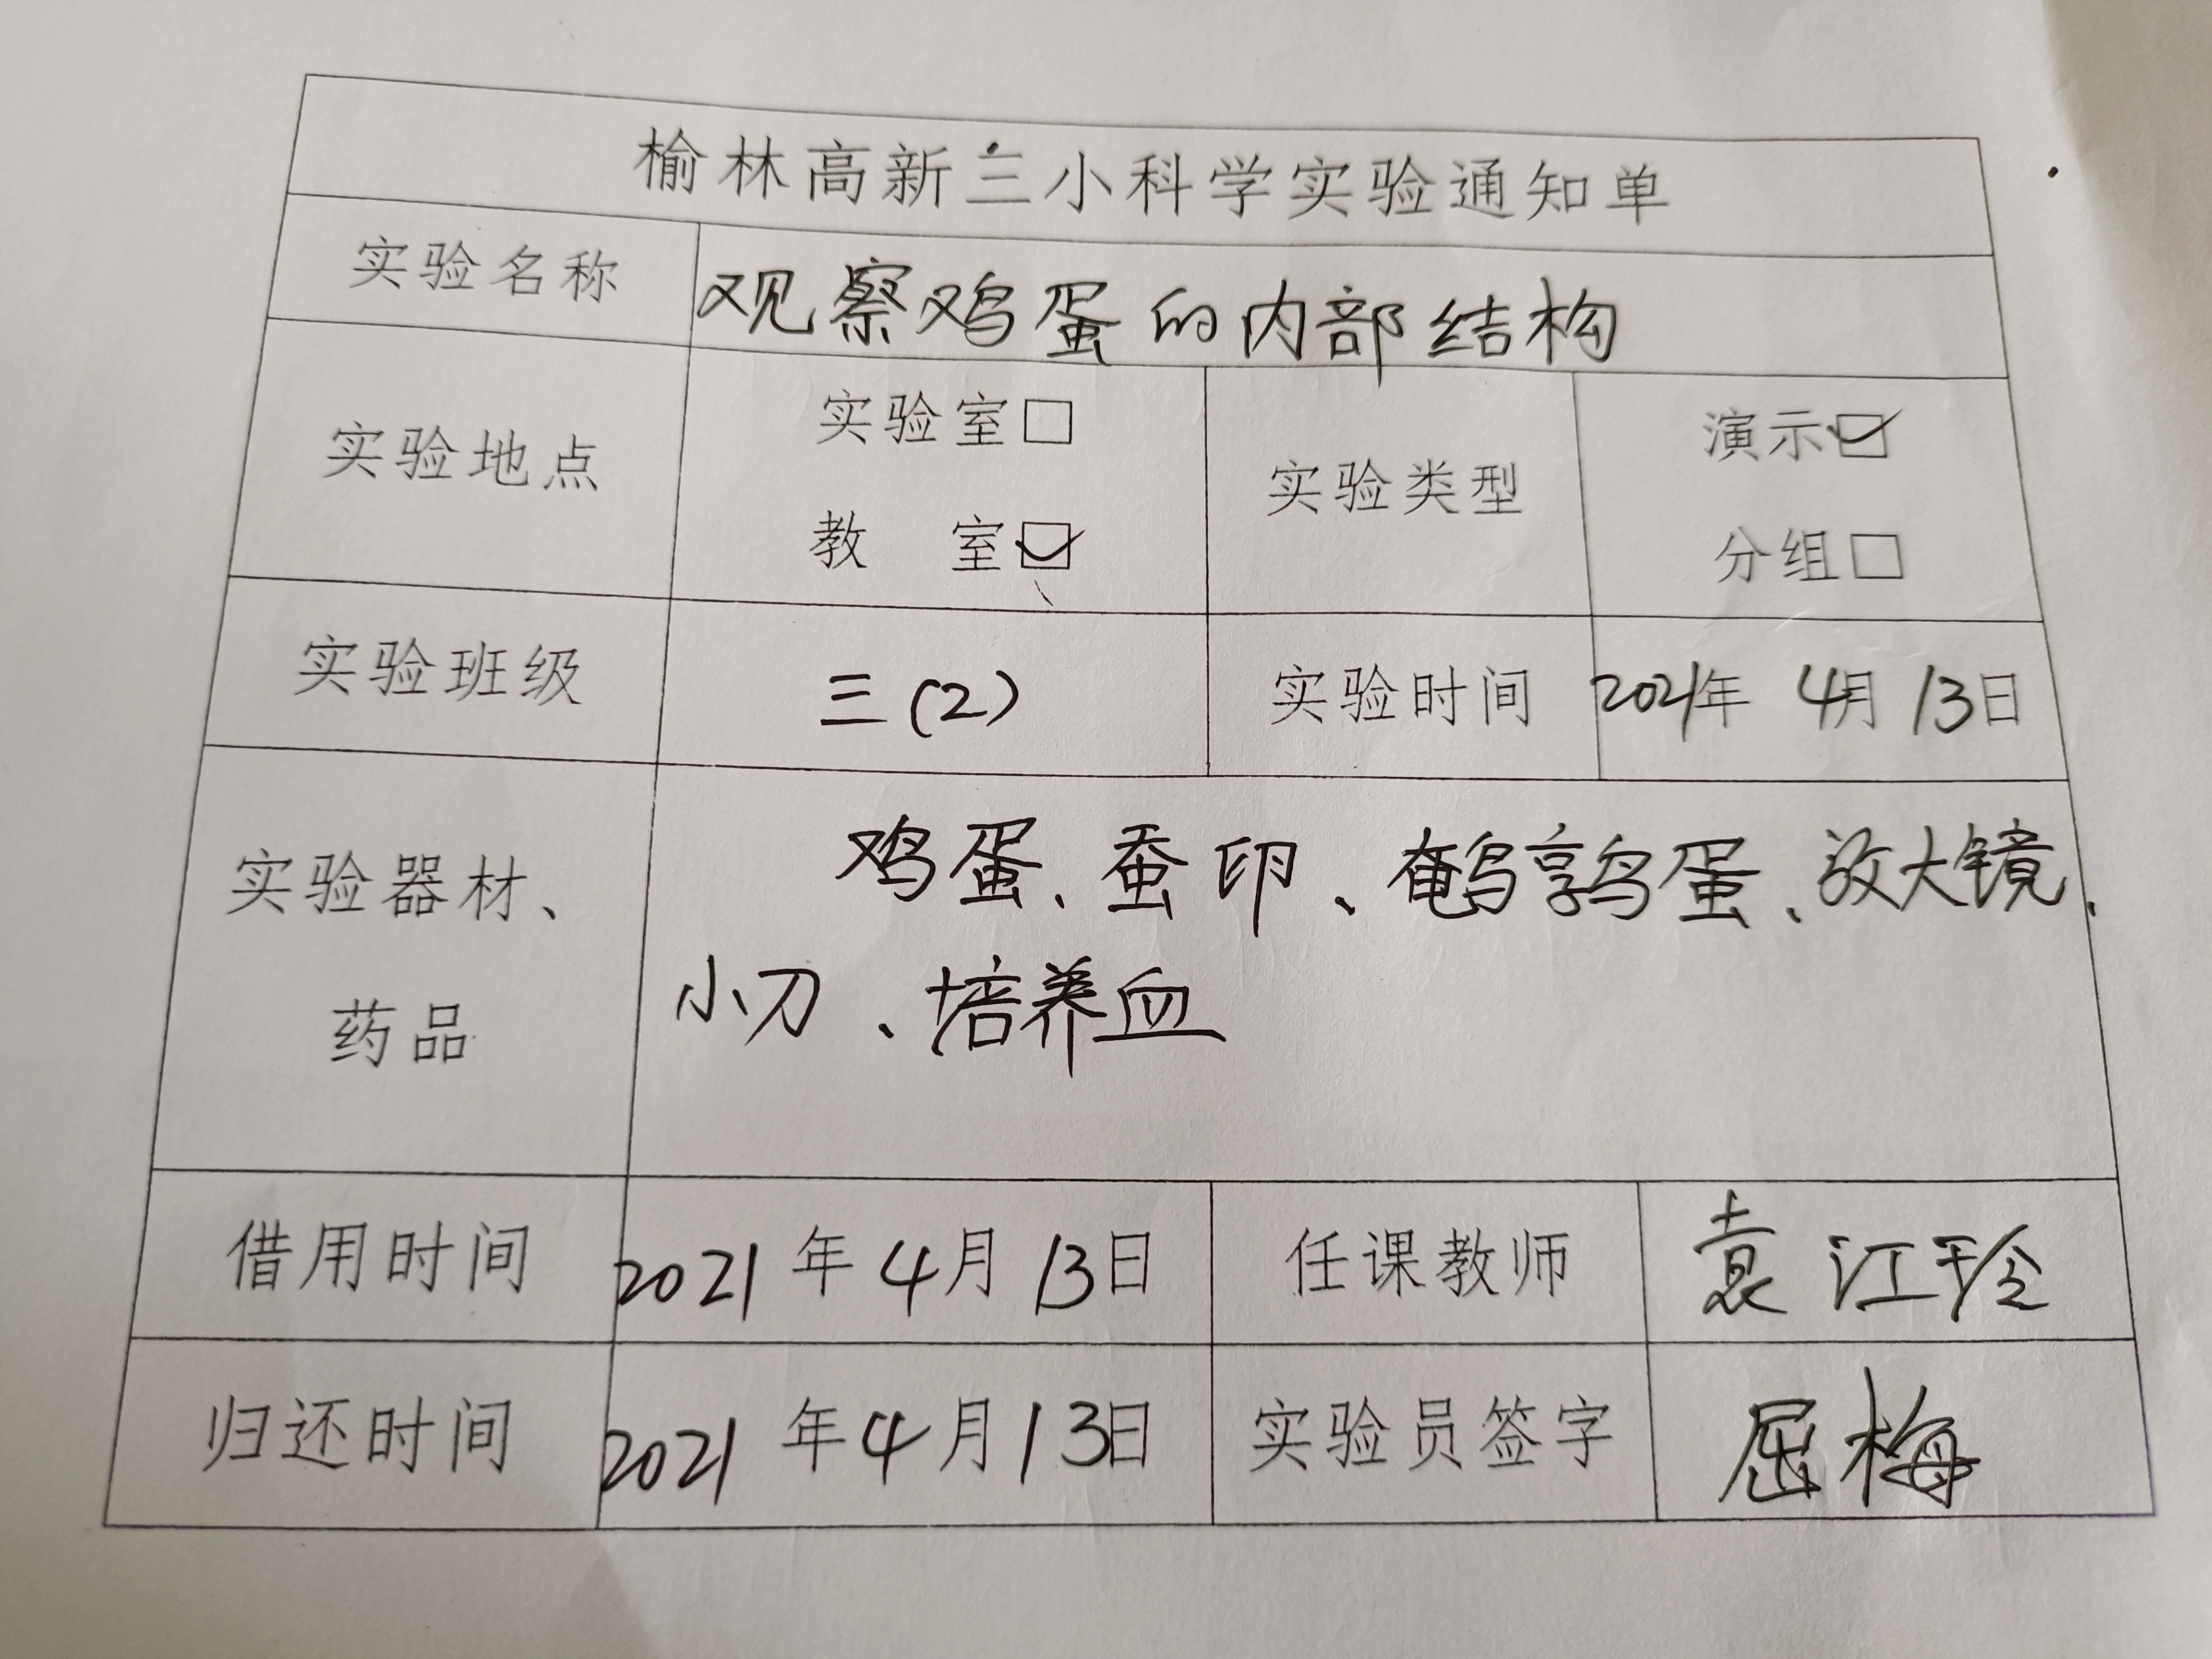 榆林高新三小科学实验通知单
实验名称 观察鸡蛋的内部结构
实验室□
实验地点 实验类型 演示☑
教 室☑ 分组□
实验班级 三(2) 实验时间 2021年 4月 13日
实验器材、 鸡蛋、蚕卵、鹌鹑蛋、放大镜、
药品 小刀、培养皿
借用时间 2021年4月13日 任课教师 袁江玲
归还时间 2021年4月13日 实验员签字 屈梅